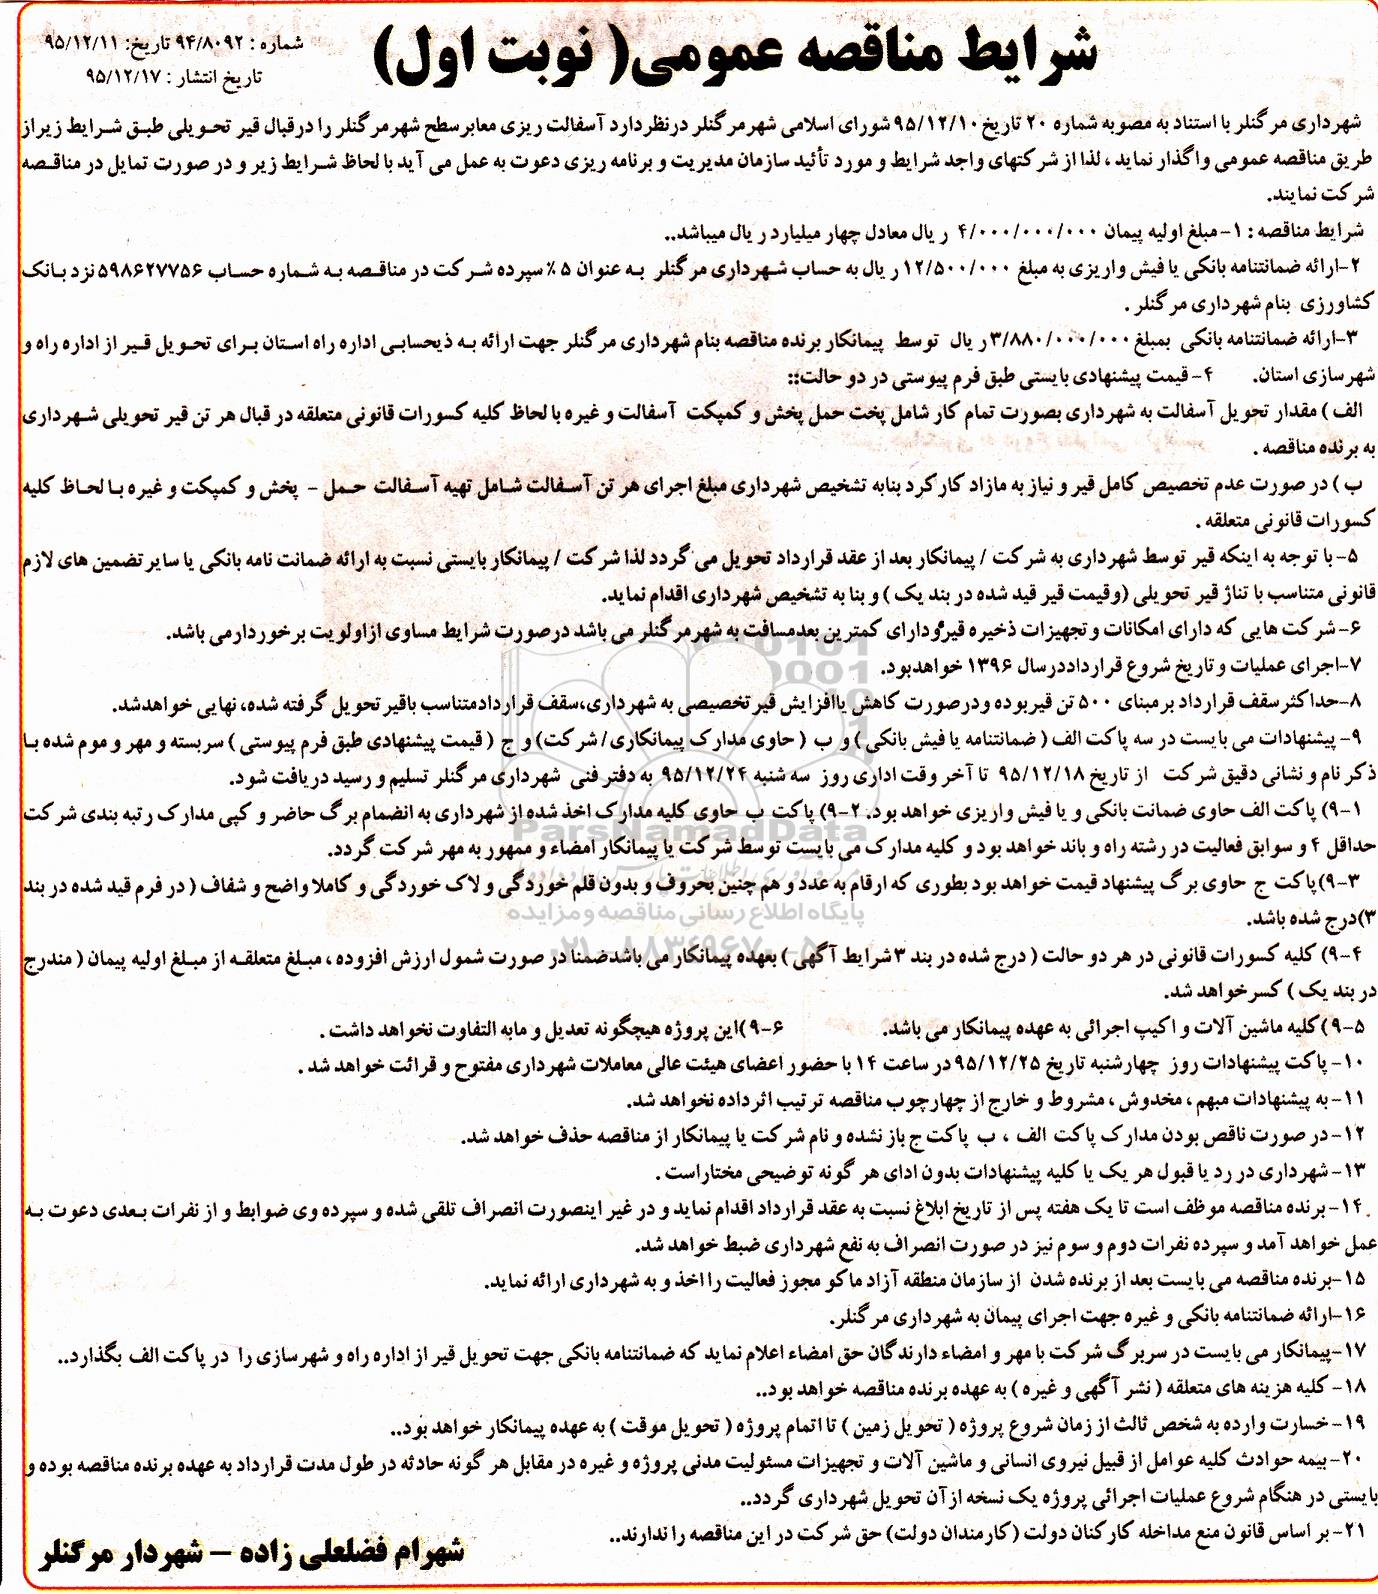 شرایط مناقصه عمومی( نوبت اول)
شماره : ۹۴/۸۰۹۲ تاریخ: ۹۵/۱۲/۱۱
تاریخ انتشار : ۹۵/۱۲/۱۷
شهرداری مرگنلر با استناد به مصوبه شماره ۲۰ تاریخ ۹۵/۱۲/۱۰ شورای اسلامی شهرمرگنلر درنظردارد آسفالت ریزی معابرسطح شهرمرگنلر را درقبال قیر تحویلی طبق شرایط زیراز
طریق مناقصه عمومی واگذار نماید ، لذا از شرکتهای واجد شرایط و مورد تأئید سازمان مدیریت و برنامه ریزی دعوت به عمل می آید با لحاظ شرایط زیر و در صورت تمایل در مناقصه
شرکت نمایند.
شرایط مناقصه : ۱- مبلغ اولیه پیمان ۴/۰۰۰/۰۰۰/۰۰۰ ریال معادل چهار میلیارد ریال میباشد..
۲-ارائه ضمانتنامه بانکی یا فیش واریزی به مبلغ ۱۲/۵۰۰/۰۰۰ ریال به حساب شهرداری مرگنلر به عنوان ۵٪ سپرده شرکت در مناقصه به شماره حساب ۵۹۸۶۲۷۷۵۶ نزد بانک
کشاورزی بنام شهرداری مرگنلر .
۳-ارائه ضمانتنامه بانکی بمبلغ ۳/۸۸۰/۰۰۰/۰۰۰ ریال توسط پیمانکار برنده مناقصه بنام شهرداری مرگنلر جهت ارائه به ذیحسابی اداره راه استان برای تحویل قیر از اداره راه و
شهرسازی استان. ۴- قیمت پیشنهادی بایستی طبق فرم پیوستی در دو حالت::
الف ) مقدار تحویل آسفالت به شهرداری بصورت تمام کار شامل پخت حمل پخش و کمپکت آسفالت و غیره با لحاظ کلیه کسورات قانونی متعلقه در قبال هر تن قیر تحویلی شهرداری
به برنده مناقصه .
ب ) در صورت عدم تخصیص کامل قیر و نیاز به مازاد کارکرد بنابه تشخیص شهرداری مبلغ اجرای هر تن آسفالت شامل تهیه آسفالت حمل – پخش و کمپکت و غیره با لحاظ کلیه
کسورات قانونی متعلقه .
۵- با توجه به اینکه قیر توسط شهرداری به شرکت / پیمانکار بعد از عقد قرارداد تحویل می گردد لذا شرکت / پیمانکار بایستی نسبت به ارائه ضمانت نامه بانکی یا سایر تضمین های لازم
قانونی متناسب با تناژ قیر تحویلی (وقیمت قیر قید شده در بند یک ) و بنا به تشخیص شهرداری اقدام نماید.
۶- شرکت هایی که دارای امکانات و تجهیزات ذخیره قیرودارای کمترین بعدمسافت به شهرمرگنلر می باشد درصورت شرایط مساوی ازاولویت برخوردارمی باشد.
۷-اجرای عملیات و تاریخ شروع قرارداددرسال ۱۳۹۶ خواهدبود.
۸-حداکثرسقف قرارداد برمبنای ۵۰۰ تن قیربوده ودرصورت کاهش یاافزایش قیرتخصیصی به شهرداری،سقف قراردادمتناسب باقیرتحویل گرفته شده، نهایی خواهدشد.
۹- پیشنهادات می بایست در سه پاکت الف ( ضمانتنامه یا فیش بانکی ) و ب ( حاوی مدارک پیمانکاری/ شرکت) و ج ( قیمت پیشنهادی طبق فرم پیوستی ) سربسته و مهر و موم شده با
ذکر نام و نشانی دقیق شرکت از تاریخ ۹۵/۱۲/۱۸ تا آخر وقت اداری روز سه شنبه ۹۵/۱۲/۲۴ به دفتر فنی شهرداری مرگنلر تسلیم و رسید دریافت شود.
۹-۱) پاکت الف حاوی ضمانت بانکی و یا فیش واریزی خواهد بود. ۹-۲) پاکت ب حاوی کلیه مدارک اخذ شده از شهرداری به انضمام برگ حاضر و کپی مدارک رتبه بندی شرکت
حداقل ۴ و سوابق فعالیت در رشته راه و باند خواهد بود و کلیه مدارک می بایست توسط شرکت یا پیمانکار امضاء و ممهور به مهر شرکت گردد.
۹-۳)پاکت ج حاوی برگ پیشنهاد قیمت خواهد بود بطوری که ارقام به عدد و هم چنین بحروف و بدون قلم خوردگی و لاک خوردگی و کاملا واضح و شفاف ( در فرم قید شده در بند
۳)درج شده باشد.
۹-۴) کلیه کسورات قانونی در هر دو حالت ( درج شده در بند ۳ شرایط آگهی ) بعهده پیمانکار می باشدضمنا در صورت شمول ارزش افزوده ، مبلغ متعلقه از مبلغ اولیه پیمان ( مندرج
در بند یک ) کسرخواهد شد.
۹-۵)کلیه ماشین آلات و اکیپ اجرائی به عهده پیمانکار می باشد. ۹-۶)این پروژه هیچگونه تعدیل و مابه التفاوت نخواهد داشت .
۱۰- پاکت پیشنهادات روز چهارشنبه تاریخ ۹۵/۱۲/۲۵ در ساعت ۱۴ با حضور اعضای هیئت عالی معاملات شهرداری مفتوح و قرائت خواهد شد .
۱۱- به پیشنهادات مبهم ، مخدوش ، مشروط و خارج از چهارچوب مناقصه ترتیب اثرداده نخواهد شد.
۱۲- در صورت ناقص بودن مدارک پاکت الف ، ب پاکت ج باز نشده و نام شرکت یا پیمانکار از مناقصه حذف خواهد شد.
۱۳- شهرداری در رد یا قبول هر یک یا کلیه پیشنهادات بدون ادای هر گونه توضیحی مختاراست .
۱۴- برنده مناقصه موظف است تا یک هفته پس از تاریخ ابلاغ نسبت به عقد قرارداد اقدام نماید و در غیر اینصورت انصراف تلقی شده و سپرده وی ضوابط و از نفرات بعدی دعوت به
عمل خواهد آمد و سپرده نفرات دوم و سوم نیز در صورت انصراف به نفع شهرداری ضبط خواهد شد.
۱۵-برنده مناقصه می بایست بعد از برنده شدن از سازمان منطقه آزاد ماکو مجوز فعالیت را اخذ و به شهرداری ارائه نماید.
۱۶-ارائه ضمانتنامه بانکی و غیره جهت اجرای پیمان به شهرداری مرگنلر.
۱۷-پیمانکار می بایست در سربرگ شرکت با مهر و امضاء دارندگان حق امضاء اعلام نماید که ضمانتنامه بانکی جهت تحویل قیر از اداره راه و شهرسازی را در پاکت الف بگذارد..
۱۸- کلیه هزینه های متعلقه ( نشر آگهی و غیره ) به عهده برنده مناقصه خواهد بود..
۱۹- خسارت وارده به شخص ثالث از زمان شروع پروژه ( تحویل زمین ) تا اتمام پروژه ( تحویل موقت ) به عهده پیمانکار خواهد بود..
۲۰-بیمه حوادث کلیه عوامل از قبیل نیروی انسانی و ماشین آلات و تجهیزات مسئولیت مدنی پروژه و غیره در مقابل هر گونه حادثه در طول مدت قرارداد به عهده برنده مناقصه بوده و
بایستی در هنگام شروع عملیات اجرائی پروژه یک نسخه ازآن تحویل شهرداری گردد..
۲۱- بر اساس قانون منع مداخله کارکنان دولت (کارمندان دولت) حق شرکت در این مناقصه را ندارند..
شهرام فضلعلی زاده – شهردار مرگنلر
ParsNamadData
پایگاه اطلاع رسانی مناقصه و مزایده